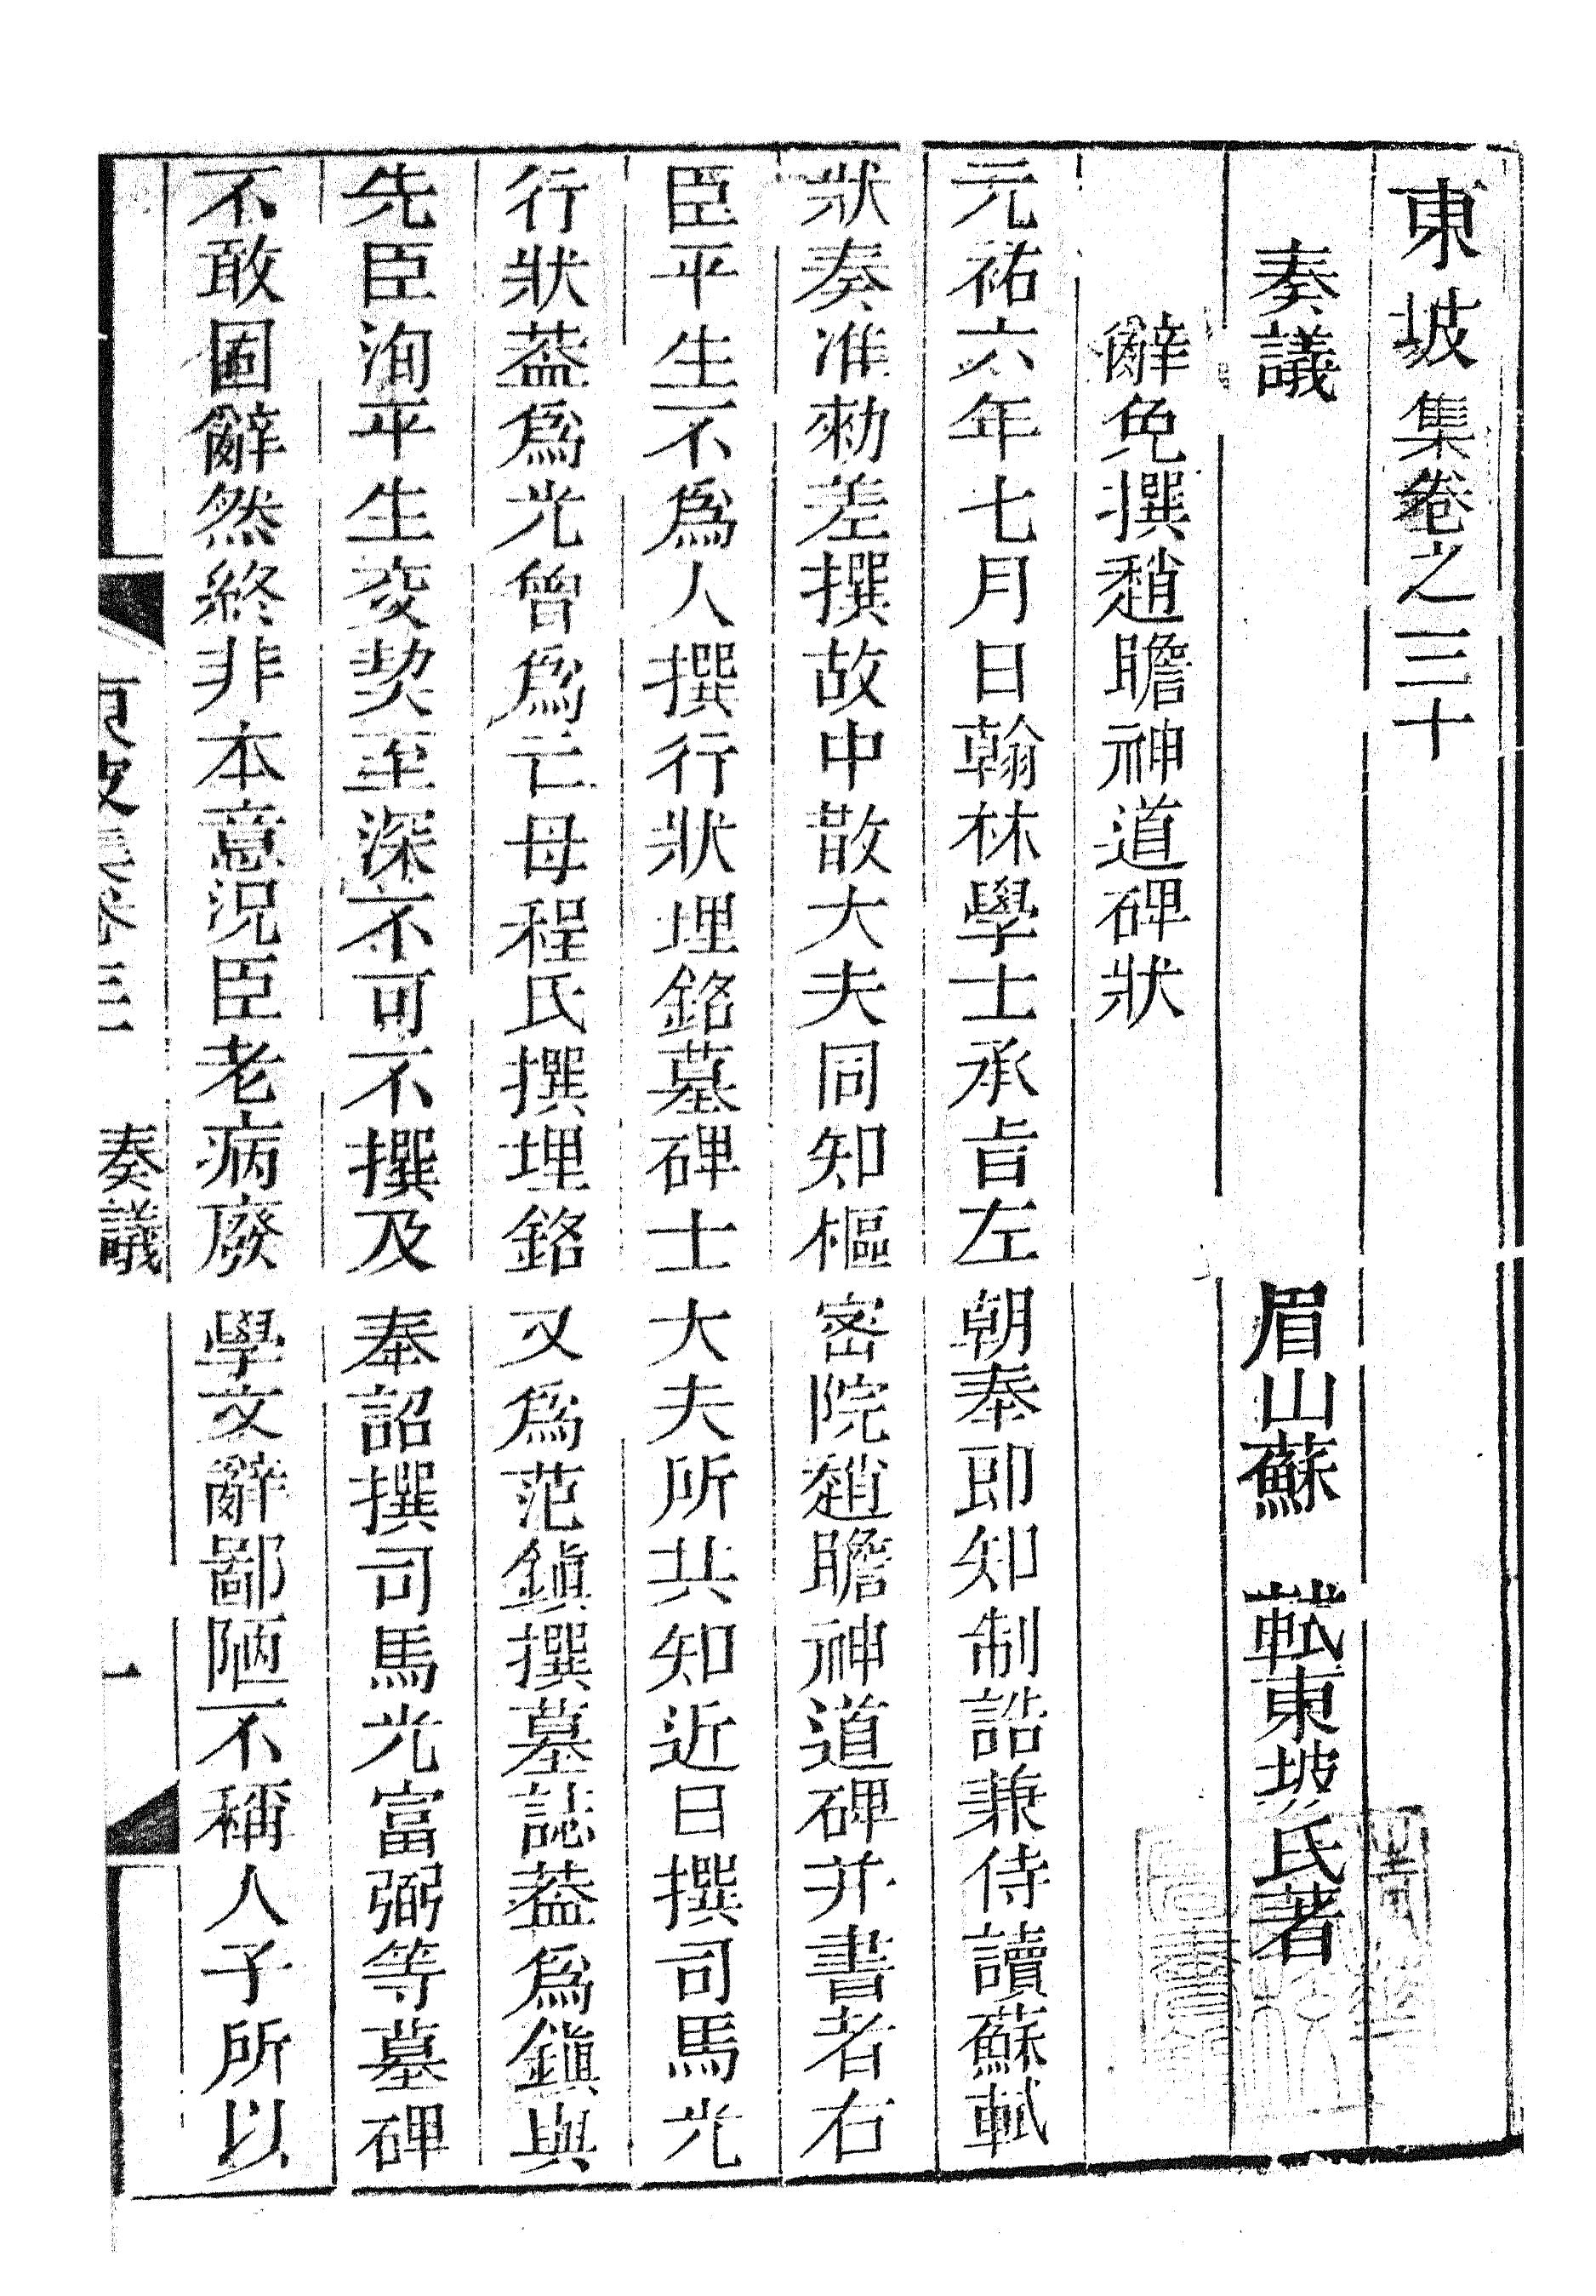 東坡集卷之三十
奏議　眉山蘇　軾東坡氏著
辭免撰趙瞻神道碑狀
元祐六年七月日翰林學士承旨左朝奉郎知制誥兼侍讀蘇軾
狀奏准勑差撰故中散大夫同知樞密院趙瞻神道碑并書者右
臣平生不爲人撰行狀埋銘墓碑士大夫所共知近日撰司馬光
行狀葢爲光曾爲亡母程氏撰埋銘又爲范鎭撰墓誌葢爲鎭與
先臣洵平生交契至深不可不撰及奉詔撰司馬光富弼等墓碑
不敢固辭然終非本意況臣老病廢學文辭鄙陋不稱人子所以
東坡集卷三　奏議　一